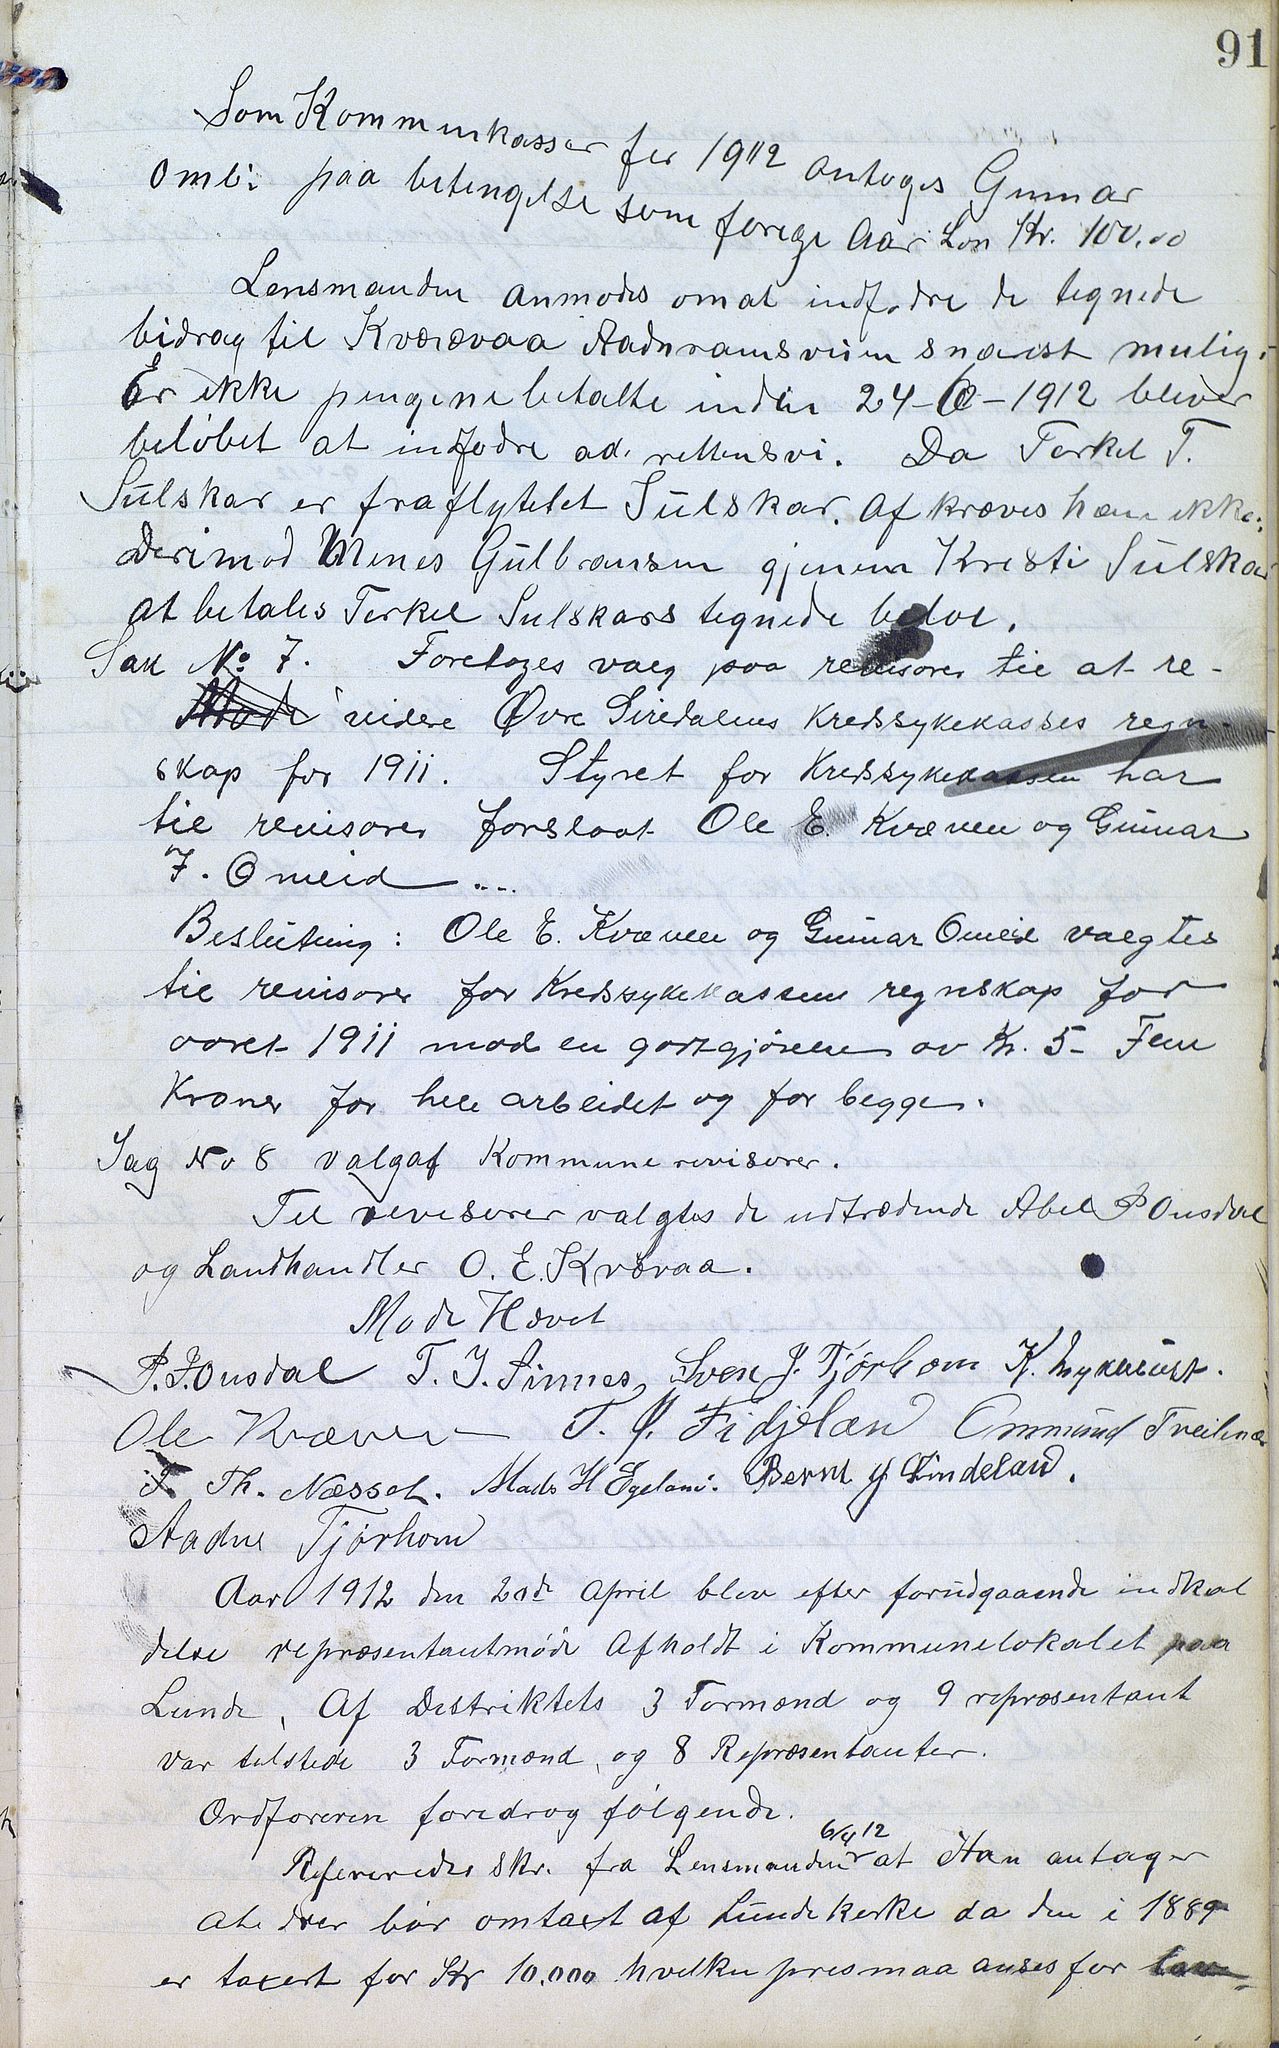 91
Som Kommunkasser for 1912 antoges Gunnar
Omli paa betingelse som forige Aar Lon Kr. 100.00
Lensmanden anmodes om at indfodre de tegnede
bidrag til Kværævaa Aadnramsveien snarest mulig.
Er ikke pengene betalte inden 24-6-1912 bliver
beløbet at indfodre ad. rettensvi. Da Terkel T.
Sulskar er fraflyttet Sulskar. Afkræves han ikke:
Derimod Menes Gulbransen gjenem Kresti Sulskar
at betales Terkel Sulskars tegnede beløe.
Sak No 7. Foretages valg paa revisorer til at re-
videre Øvre Siredalens Kredssykekasses regn-
skap for 1911. Styret for Kredssykekassen har
til revisorer forslaat Ole E. Kvæven og Gunnar
T. Omeid ...
Beslutning: Ole E. Kvæven og Gunnar Omeid valgtes
til revisorer for Kredssykekassens regnskap for
aaret 1911 mod en gortgjørelse av Kr. 5- Fem
Kroner for hele arbeidet og for begge.
Sag No 8 valg af Kommune revisorer.
Til revisorer valgtes de udtrædende Abel P Ousdal
og Landhandler O. E. Kvævaa.
Møde Hævet
P. J. Ousdal T. J. Sinnes, Sven J. Tjørhom K.
Ole Kvæven T. O. Fidjeland Ommund Treiknes
T. Th. Næsset. Mads H Egeland. Bernt J Lindeland.
Aadne Tjørhom
Aar 1912 den 20de April blev efter forudgaaende indkal
delse repræsentantmøde Afholdt i Kommunelokalet paa
Lunde, Af Distriktets 3 Formænd og 9 repræsentant
var tilstede 3 Formænd, og 8 Repræsentanter.
Ordføreren foredrog følgende.
6/4 12
Refereredes Skr. fra Lensmanden at Han antager
at der bør omtaxt af Lunde kerke da den i 1889
er taxert for Kr 10.000 hvilken pris maa anses for lav